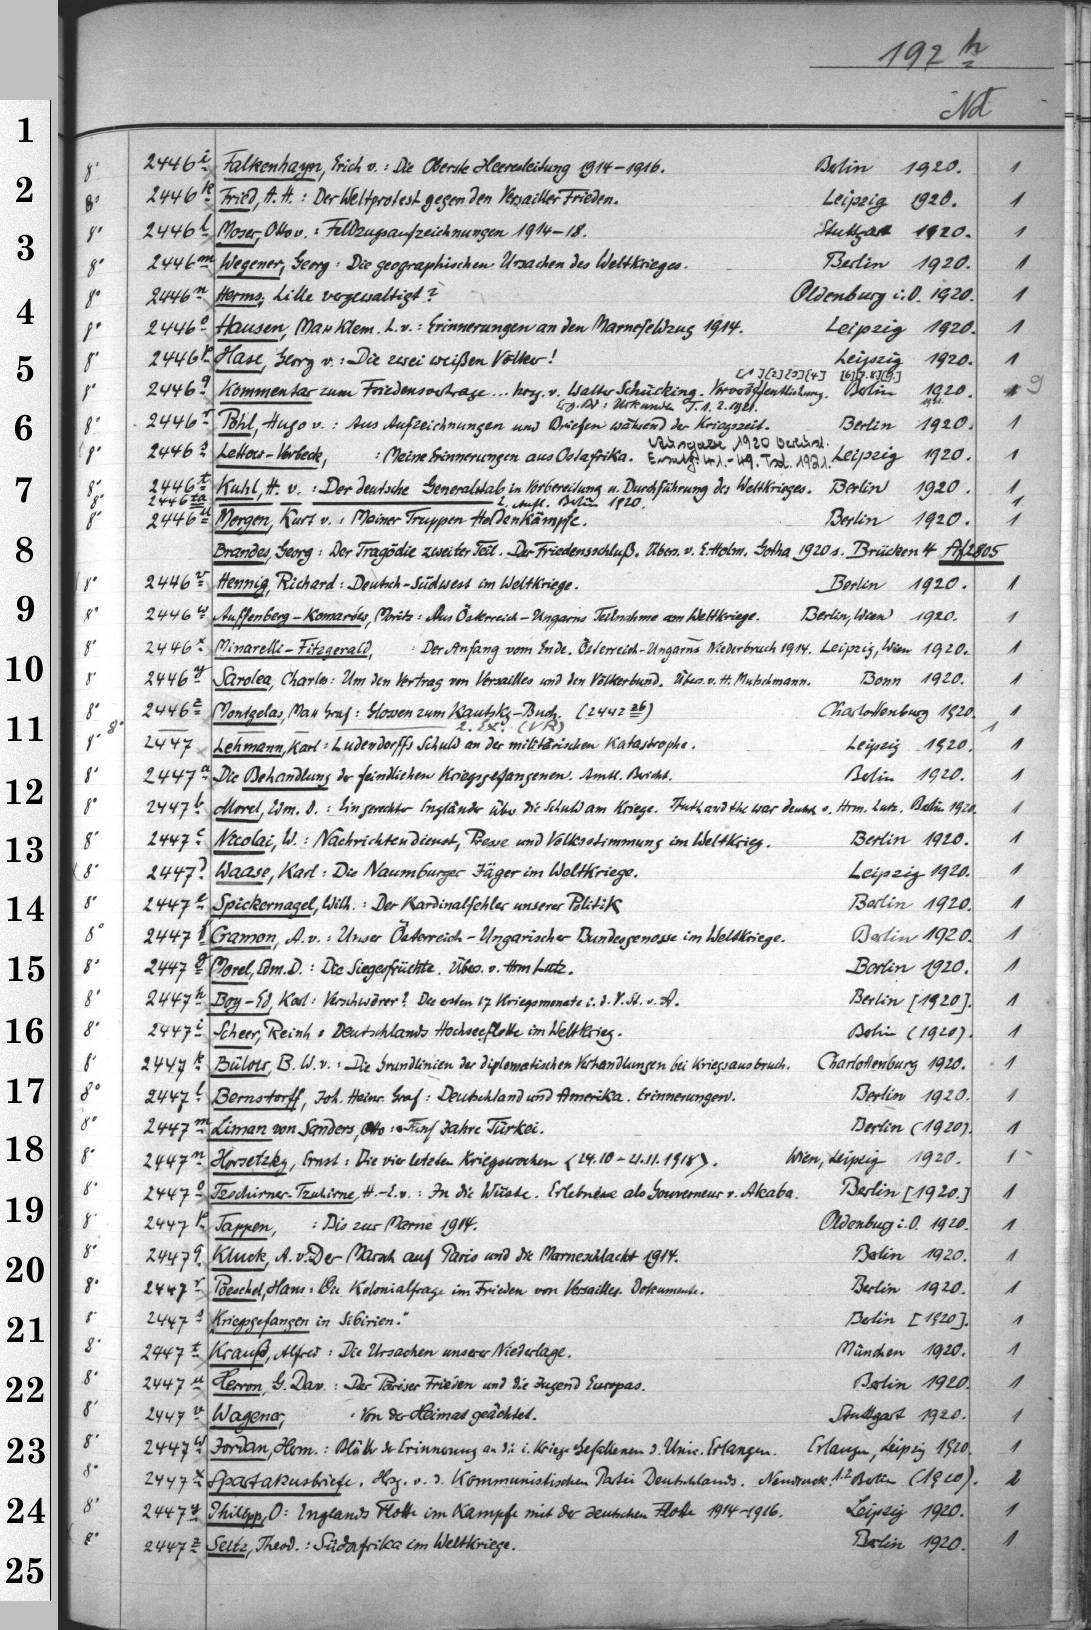 192 h
Nd
1 2 3 4 5 6 7 8 9 10 11 12 13 14 15 16 17 18 19 20 21 22 23 24 25
8° 2446 i Falkenhayn, Erich v.: Die Oberste Heeresleitung 1914-1916. Berlin 1920. 1
8° 2446 k Fried, A. H.: Der Weltprotest gegen den Versailler Frieden. Leipzig 1920. 1
8° 2446 l Moser, Otto v.: Feldzugsaufzeichnungen 1914-18. Stuttgart 1920. 1
8° 2446 m Wegener, Georg: Die geographischen Ursachen des Weltkrieges. Berlin 1920. 1
8° 2446 n Herms, Lille vergewaltigt? Oldenburg i. O. 1920. 1
8° 2446 o Hausen, Max Klem. L. v.: Erinnerungen an den Marnefeldzug 1914. Leipzig 1920. 1
8° 2446 p Hase, Georg v.: Die zwei weißen Völker! Leipzig 1920. 1
[1][2][3][4] [6][7.8][9.]
8° 2446 q Kommentar zum Friedensvertrage ... hrg. v. Walter Schücking. Vorveröffentlichung. Berlin 1920. 9
: Urkunden T. 1. 2. 1921.
8° 2446 r Pohl, Hugo v.: Aus Aufzeichnungen und Briefen während der Kriegszeit. Berlin 1920. 1
Ausgabe 1920 verlust.
8° 2446 s Lettow-Vorbeck, : Meine Erinnerungen aus Ostafrika. Ersatz: 41.-49. Tsd. 1921. Leipzig 1920. 1
8° 2446 t Kuhl, H. v.: Der deutsche Generalstab in Vorbereitung u. Durchführung des Weltkrieges. Berlin 1920. 1
8° 2446 ta 2. Aufl. Berlin 1920. 1
8° 2446 u Morgen, Kurt v.: Meiner Truppen Heldenkämpfe. Berlin 1920. 1
Brandes, Georg: Der Tragödie zweiter Teil. Der Friedensschluß. Übers. v. E. Holm. Gotha 1920 s. Brücken 4 Af 2805
8° 2446 v Hennig, Richard: Deutsch-Südwest im Weltkriege. Berlin 1920. 1
8° 2446 w Auffenberg-Komarów, Moritz: Aus Österreich-Ungarns Teilnahme am Weltkriege. Berlin, Wien 1920. 1
8° 2446 x Minarelli-Fitzgerald, : Der Anfang vom Ende. Österreich-Ungarns Niederbruch 1914. Leipzig, Wien 1920. 1
8° 2446 y Sarolea, Charles: Um den Vertrag von Versailles und den Völkerbund. Übers. v. H. Mutschmann. Bonn 1920. 1
8° 2446 z Montgelas, Max Graf: Glossen zum Kautsky-Buch. (2442 26) Charlottenburg 1920. 1
8° 2. Ex. (VR) 1
8° 2447 Lehmann, Karl: Ludendorffs Schuld an der militärischen Katastrophe. Leipzig 1920. 1
8° 2447 a Die Behandlung der feindlichen Kriegsgefangenen. Amtl. Bericht. Berlin 1920. 1
8° 2447 b Morel, Edm. D.: Ein gerechter Engländer über die Schuld am Kriege. Truth and the war deutsch v. Hrm. Lutz. Berlin 1920. 1
8° 2447 c Nicolai, W.: Nachrichtendienst, Presse und Volksstimmung im Weltkrieg. Berlin 1920. 1
8° 2447 d Waase, Karl: Die Naumburger Jäger im Weltkriege. Leipzig 1920. 1
8° 2447 e Spickernagel, Wilh.: Der Kardinalfehler unserer Politik Berlin 1920. 1
8° 2447 f Cramon, A. v.: Unser Österreich-Ungarischer Bundesgenosse im Weltkriege. Berlin 1920. 1
8° 2447 g Morel, Edm. D.: Die Siegesfrüchte. Übers. v. Hrm Lutz. Berlin 1920. 1
8° 2447 h Boy-Ed, Karl: Verschwörer? Die ersten 17 Kriegsmonate i. d. V. St. v. A. Berlin [1920]. 1
8° 2447 i Scheer, Reinh: Deutschlands Hochseeflotte im Weltkrieg. Berlin (1920). 1
8° 2447 k Bülow, B. W. v.: Die Grundlinien der diplomatischen Verhandlungen bei Kriegsausbruch. Charlottenburg 1920. 1
8° 2447 l Bernstorff, Joh. Heinr. Graf: Deutschland und Amerika. Erinnerungen. Berlin 1920. 1
8° 2447 m Liman von Sanders, Otto: Fünf Jahre Türkei. Berlin (1920). 1
8° 2447 n Horsetzky, Ernst: Die vier letzten Kriegswochen (24.10-21.11.1918). Wien, Leipzig 1920. 1
8° 2447 o Teschirner-Tzschirne, H.-E. v.: In die Wüste. Erlebnisse als Gouverneur v. Akaba. Berlin [1920.] 1
8° 2447 p Tappen, : Bis zur Marne 1914. Oldenburg i. O. 1920. 1
8° 2447 q Kluck, A. v.: Der Marsch auf Paris und die Marneschlacht 1914. Berlin 1920. 1
8° 2447 r Poeschel, Hans: Die Kolonialfrage im Frieden von Versailles. Dokumente. Berlin 1920. 1
8° 2447 s Kriegsgefangen in Sibirien. Berlin [1920]. 1
8° 2447 t Krauß, Alfred: Die Ursachen unserer Niederlage. München 1920. 1
8° 2447 u Herron, G. Dav.: Der Pariser Frieden und die Jugend Europas. Berlin 1920. 1
8° 2447 v Wagener, : Von der Heimat geächtet. Stuttgart 1920. 1
8° 2447 w Jordan, Herm.: Blätter der Erinnerung an die i. Kriege Gefallenen d. Univ. Erlangen. Erlangen, Leipzig 1920. 1
8° 2447 x Spartakusbriefe. Hrg. v. d. Kommunistischen Partei Deutschlands. Neudruck. 1.2 Berlin (1920). 2
8° 2447 y Philipp, O: Englands Flotte im Kampfe mit der deutschen Flotte 1914-1916. Leipzig 1920. 1
8° 2447 z Seitz, Theod.: Südafrika im Weltkriege. Berlin 1920. 1